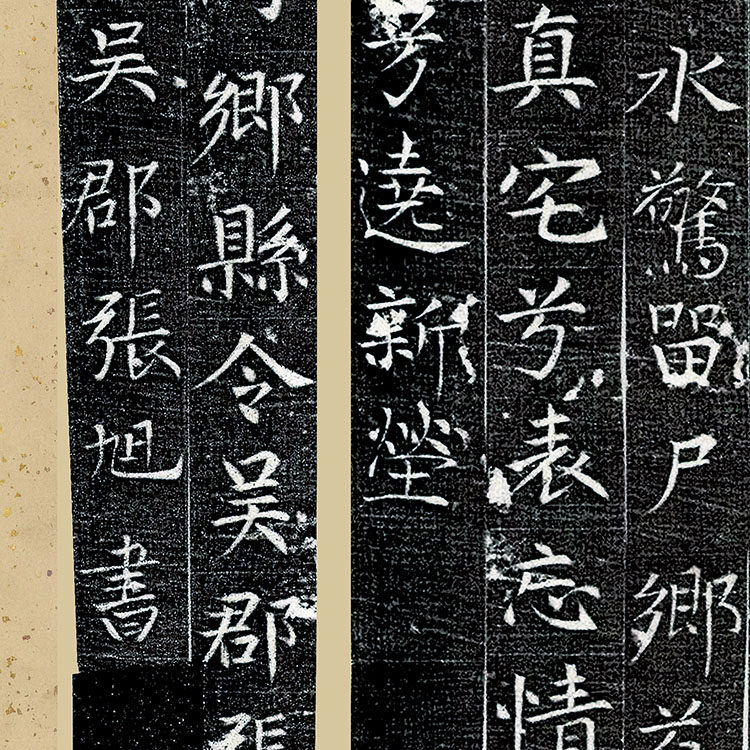 水驚留尸鄉
真宅兮表忘情
兮遶新塋
鄉縣令吳郡張
吳郡張旭書